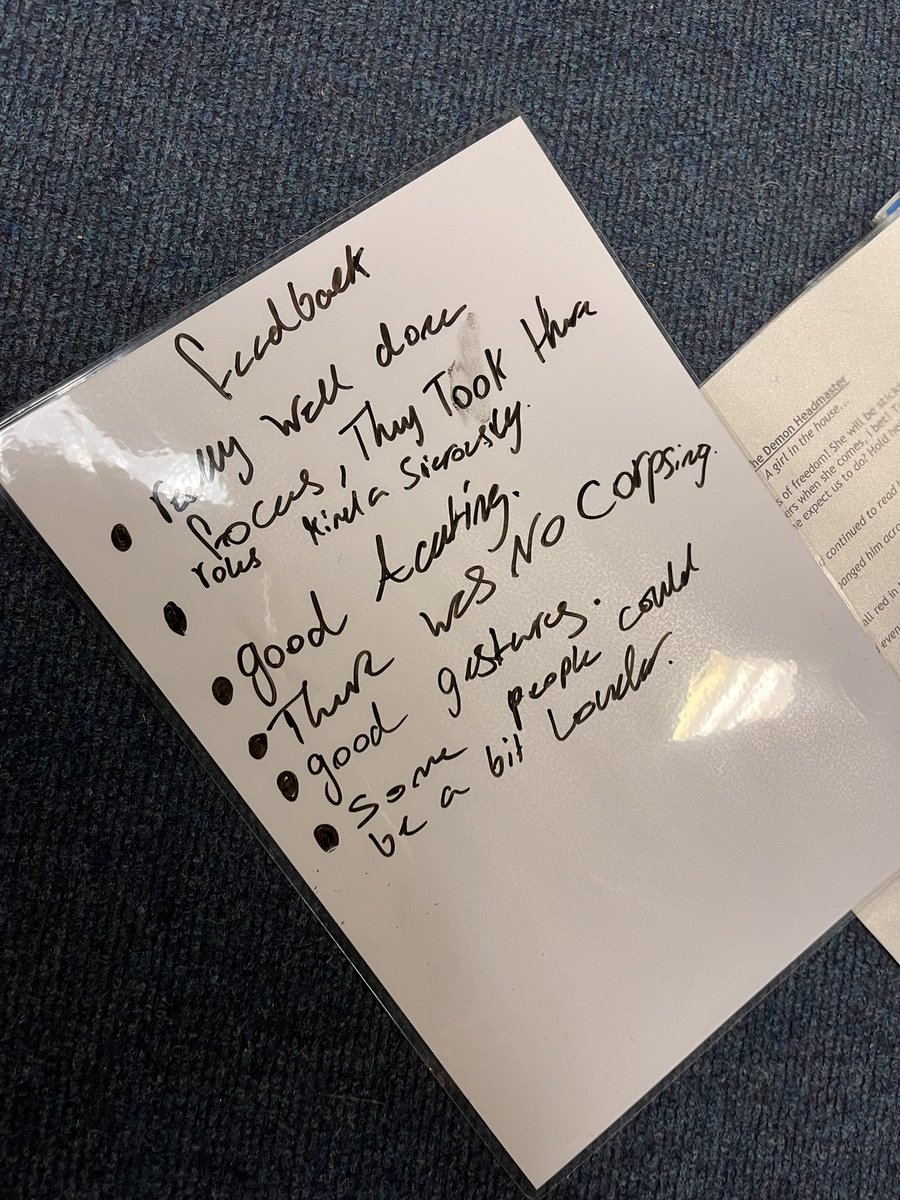 Feedback
• really well done
• focus, They Took there
roles kinda Sierously.
• good Acating.
• There was No Corpsing.
• good gestures.
• Some people could
be a bit Louder.
the Demon Headmaster
A girl in the house...
s of freedom! She will be stick
ers when she comes, I bet! T
e expect us to do? Hold he
continued to read
anged him acro
all red in
even